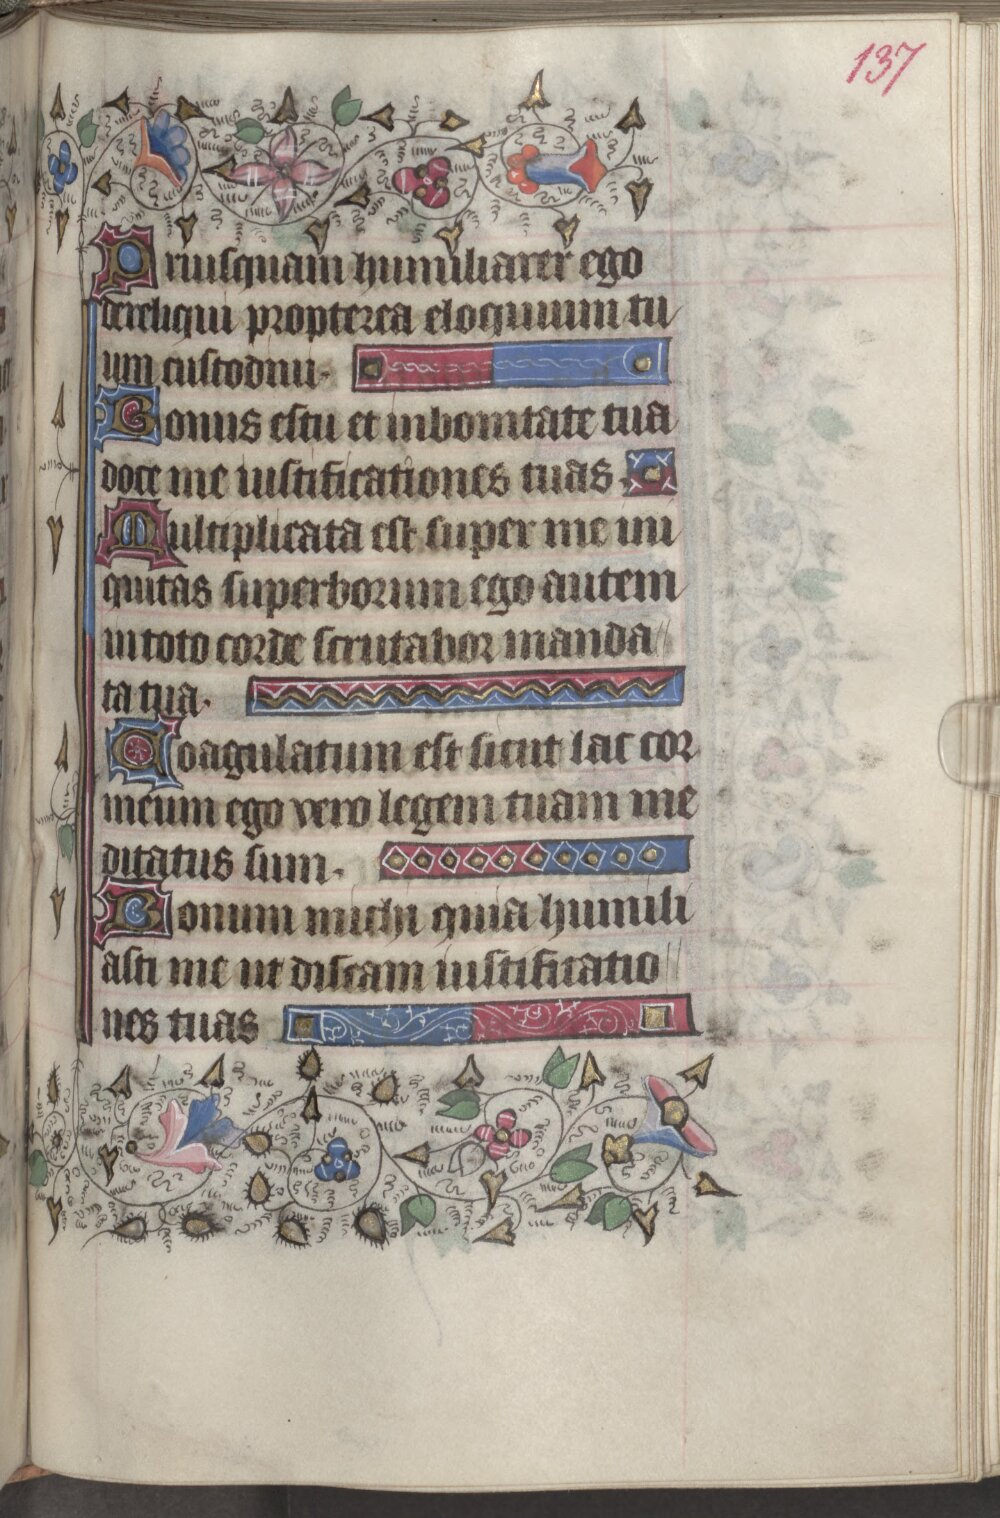 137
Priusquam humiliarer ego
dereliqui propterea eloquium tu
um custodiui.
Bonus es tu et in bonitate tua
doce me iustificationes tuas.
Multiplicata est super me ini
quitas superborum ego autem
in toto corde scrutabor manda
ta tua.
Coagulatum est sicut lac cor
meum ego vero legem tuam me
ditatus sum.
Bonum michi quia humili
asti me ut discam iustificatio
nes tuas